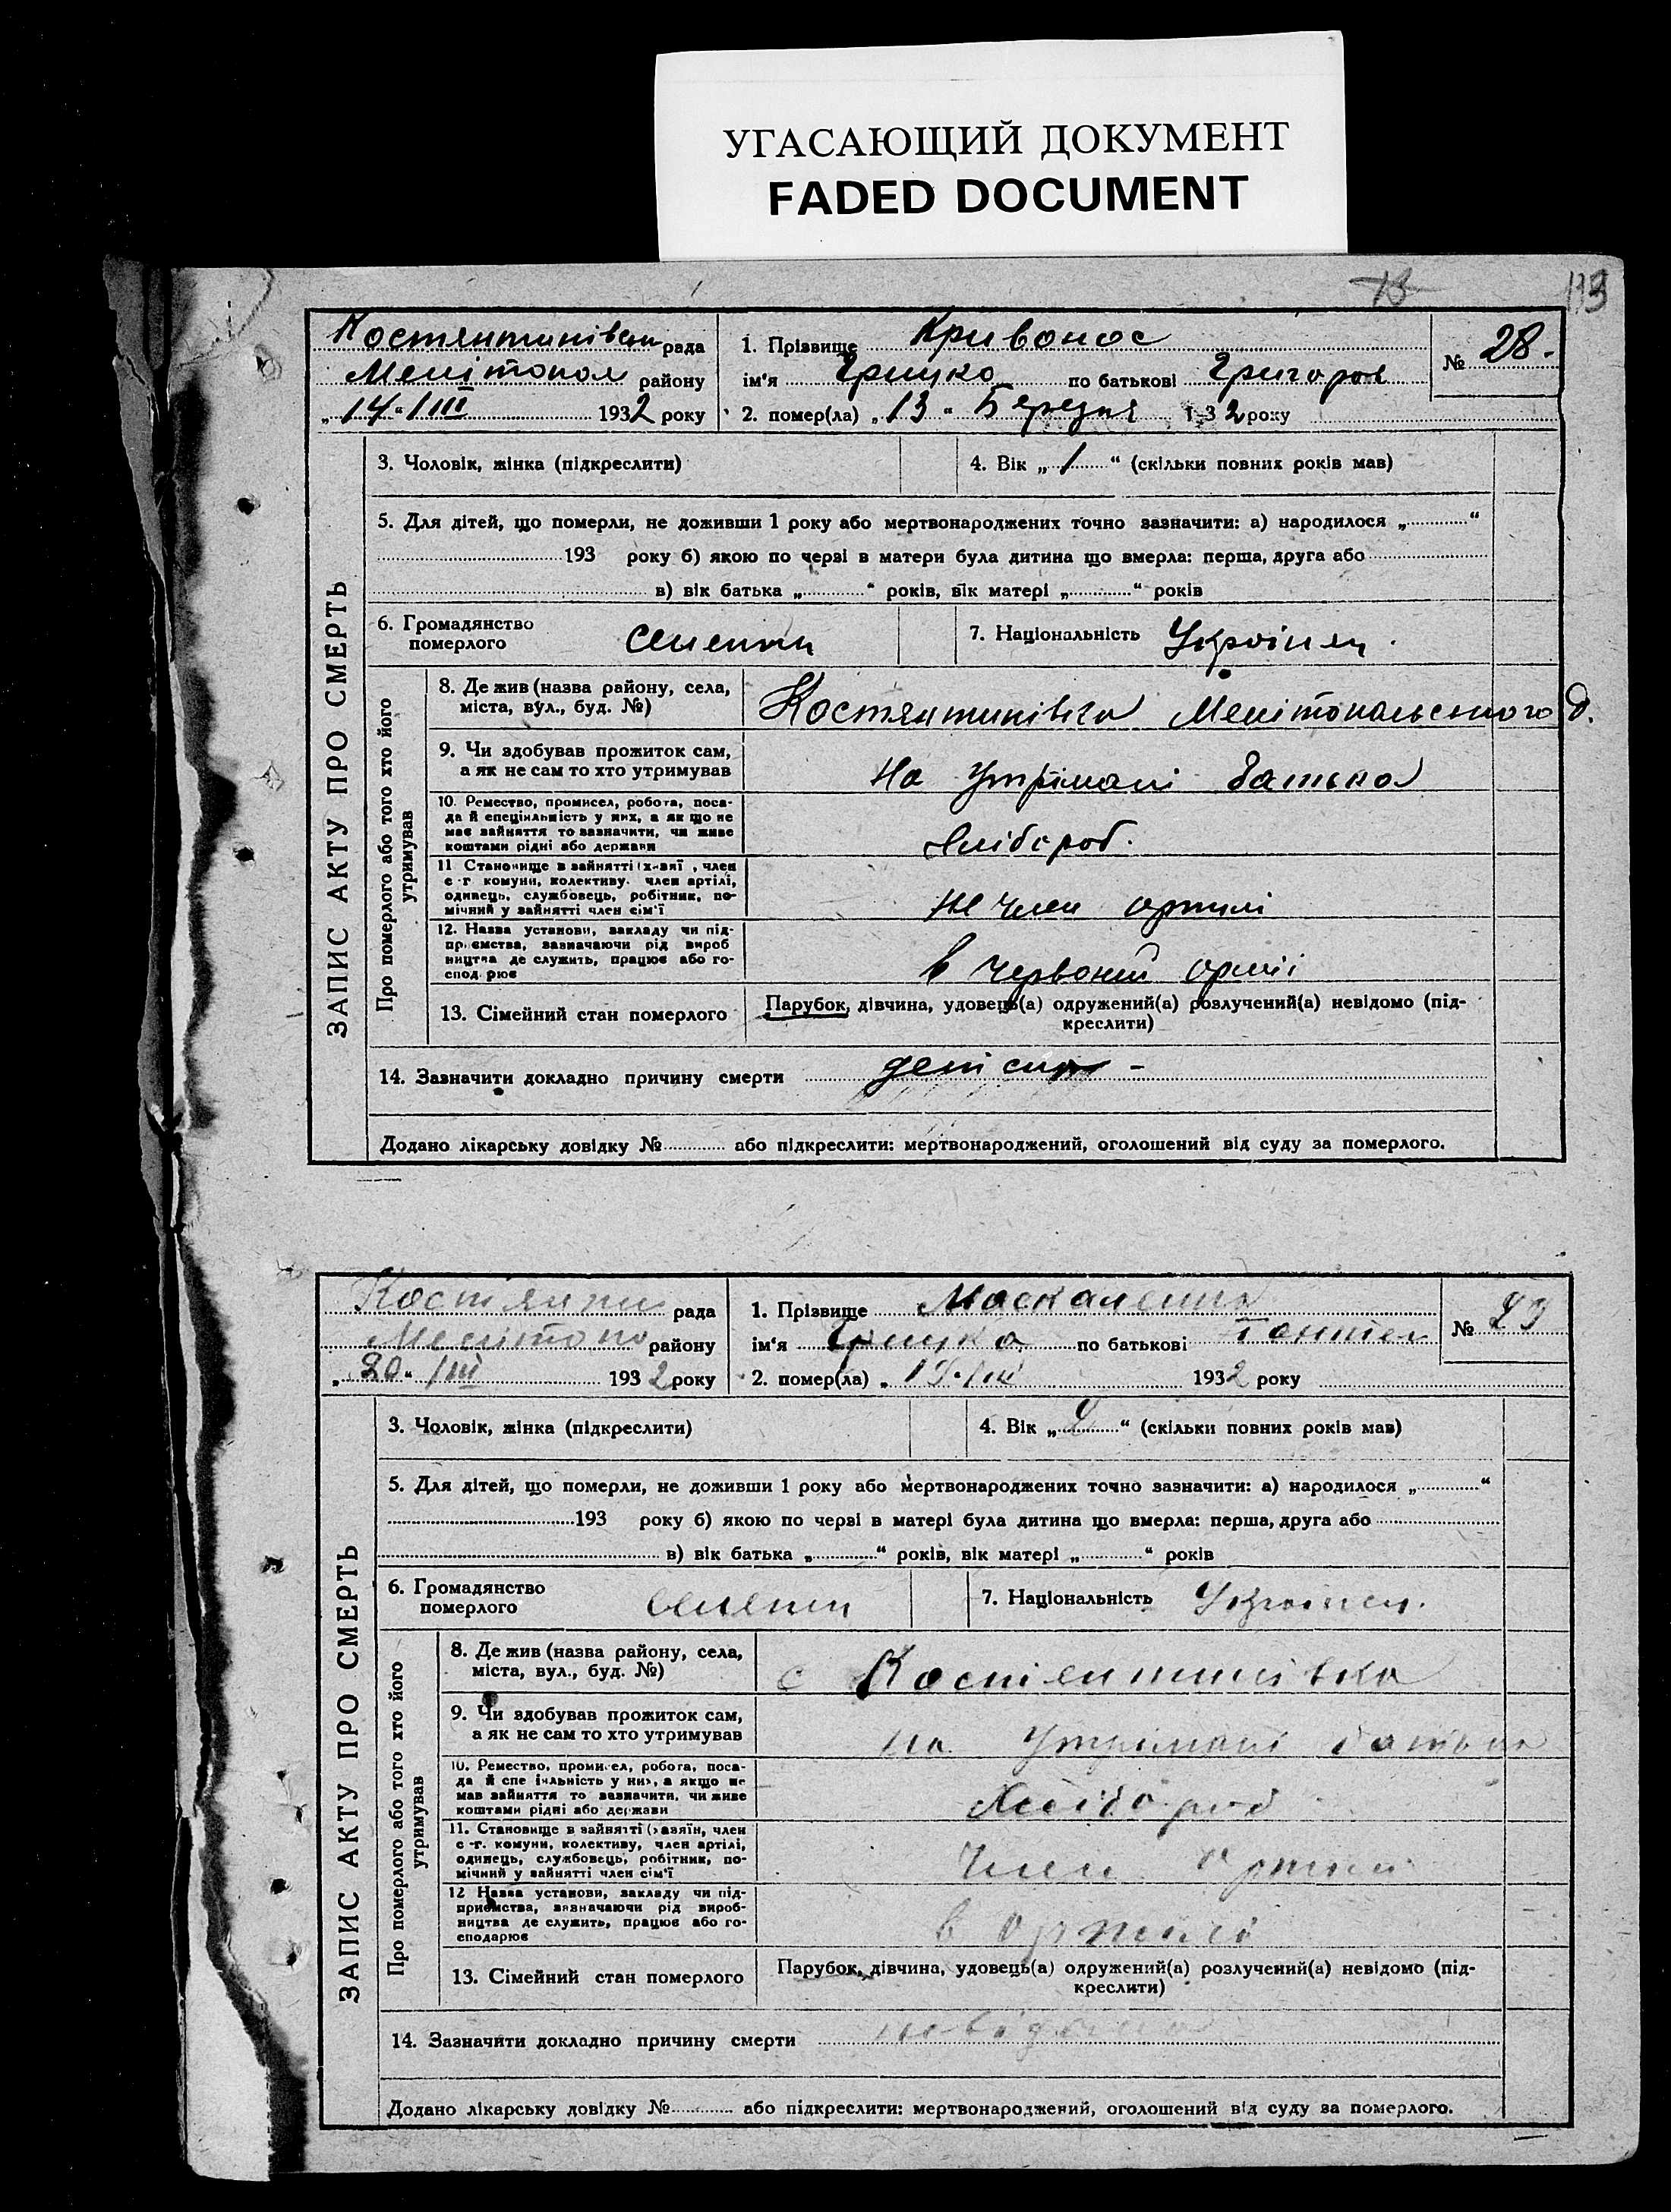 УГАСАЮЩИЙ ДОКУМЕНТ
FADED DOCUMENT
113
рада
Мелітопол району
„14“ III 1932 року
1. Прізвище Кривонос
ім'я Грицко по батькові Григоров
2. помер(ла) „13“ Березня 1932 року
№ 28.
ЗАПИС АКТУ ПРО СМЕРТЬ
3. Чоловік, жінка (підкреслити)
4. Вік „1“ (скільки повних років мав)
5. Для дітей, що померли, не доживши 1 року або мертвонароджених точно зазначити: а) народилося „ “
193 року б) якою по черві в матери була дитина що вмерла: перша, друга або
в) вік батька „ “ років, вік матері „ “ років
6. Громадянство
померлого
7. Національність Українец.
Про померлого або того хто його
утримував
8. Де жив (назва району, села,
міста, вул., буд. №)
Костянтинівка Мелітопольського
9. Чи здобував прожиток сам,
а як не сам то хто утримував
на утрімані батька
10. Ремество, промисел, робота, поса-
да й спеціяльність у них, а як що не
мав зайняття то зазначити, чи живе
коштами рідні або держави
Хлібороб.
11 Становище в зайнятті (х-зяї , член
с-г комуни, колективу. член артілі,
одинець, службовець, робітник, по-
мічний у зайнятті член сім'ї
не член артилі
12. Назва установи, закладу чи під-
приємства, зазначаючи рід вироб
ництва де служить, працює або го-
спод рює
в червоній армії
13. Сімейний стан померлого
Парубок, дівчина, удовець(а) одружений(а) розлучений(а) невідомо (під-
креслити)
14. Зазначити докладно причину смерти
Додано лікарську довідку № або підкреслити: мертвонароджений, оголошений від суду за померлого.
рада
району
„20“ III 1932 року
1. Прізвище
ім'я Грицко по батькові
2. помер(ла) „19“ III 1932 року
№ 29
ЗАПИС АКТУ ПРО СМЕРТЬ
3. Чоловік, жінка (підкреслити)
4. Вік „ “ (скільки повних років мав)
5. Для дітей, що померли, не доживши 1 року або мертвонароджених точно зазначити: а) народилося „ “
193 року б) якою по черві в матері була дитина що вмерла: перша, друга або
в) вік батька „ “ років, вік матері „ “ років
6. Громадянство
померлого
7. Національність Українец.
Про померлого або того хто його
утримував
8. Де жив (назва району, села,
міста, вул., буд. №)
с Костентинівка
9. Чи здобував прожиток сам,
а як не сам то хто утримував
на утрімані батька
10. Ремество, промисел, робота, поса-
да й спе іяльність у них, а якщо не
мав зайняття то зазначити, чи живе
коштами рідні або держави
Хлібороб
11. Становище в зайнятті (хазяїн, член
с-г. комуни, колективу, член артілі,
одинець, службовець, робітник, по-
мічний у зайнятті член сім'ї
Член артилі
12 Назва установи, закладу чи під-
приємства, зазначаючи рід вироб-
ництва де служить, працює або го-
сподарює
в артилі
13. Сімейний стан померлого
Парубок, дівчина, удовець(а) одружений(а) розлучений(а) невідомо (під-
креслити)
14. Зазначити докладно причину смерти невідома
Додано лікарську довідку № або підкреслити: мертвонароджений, оголошений від суду за померлого.